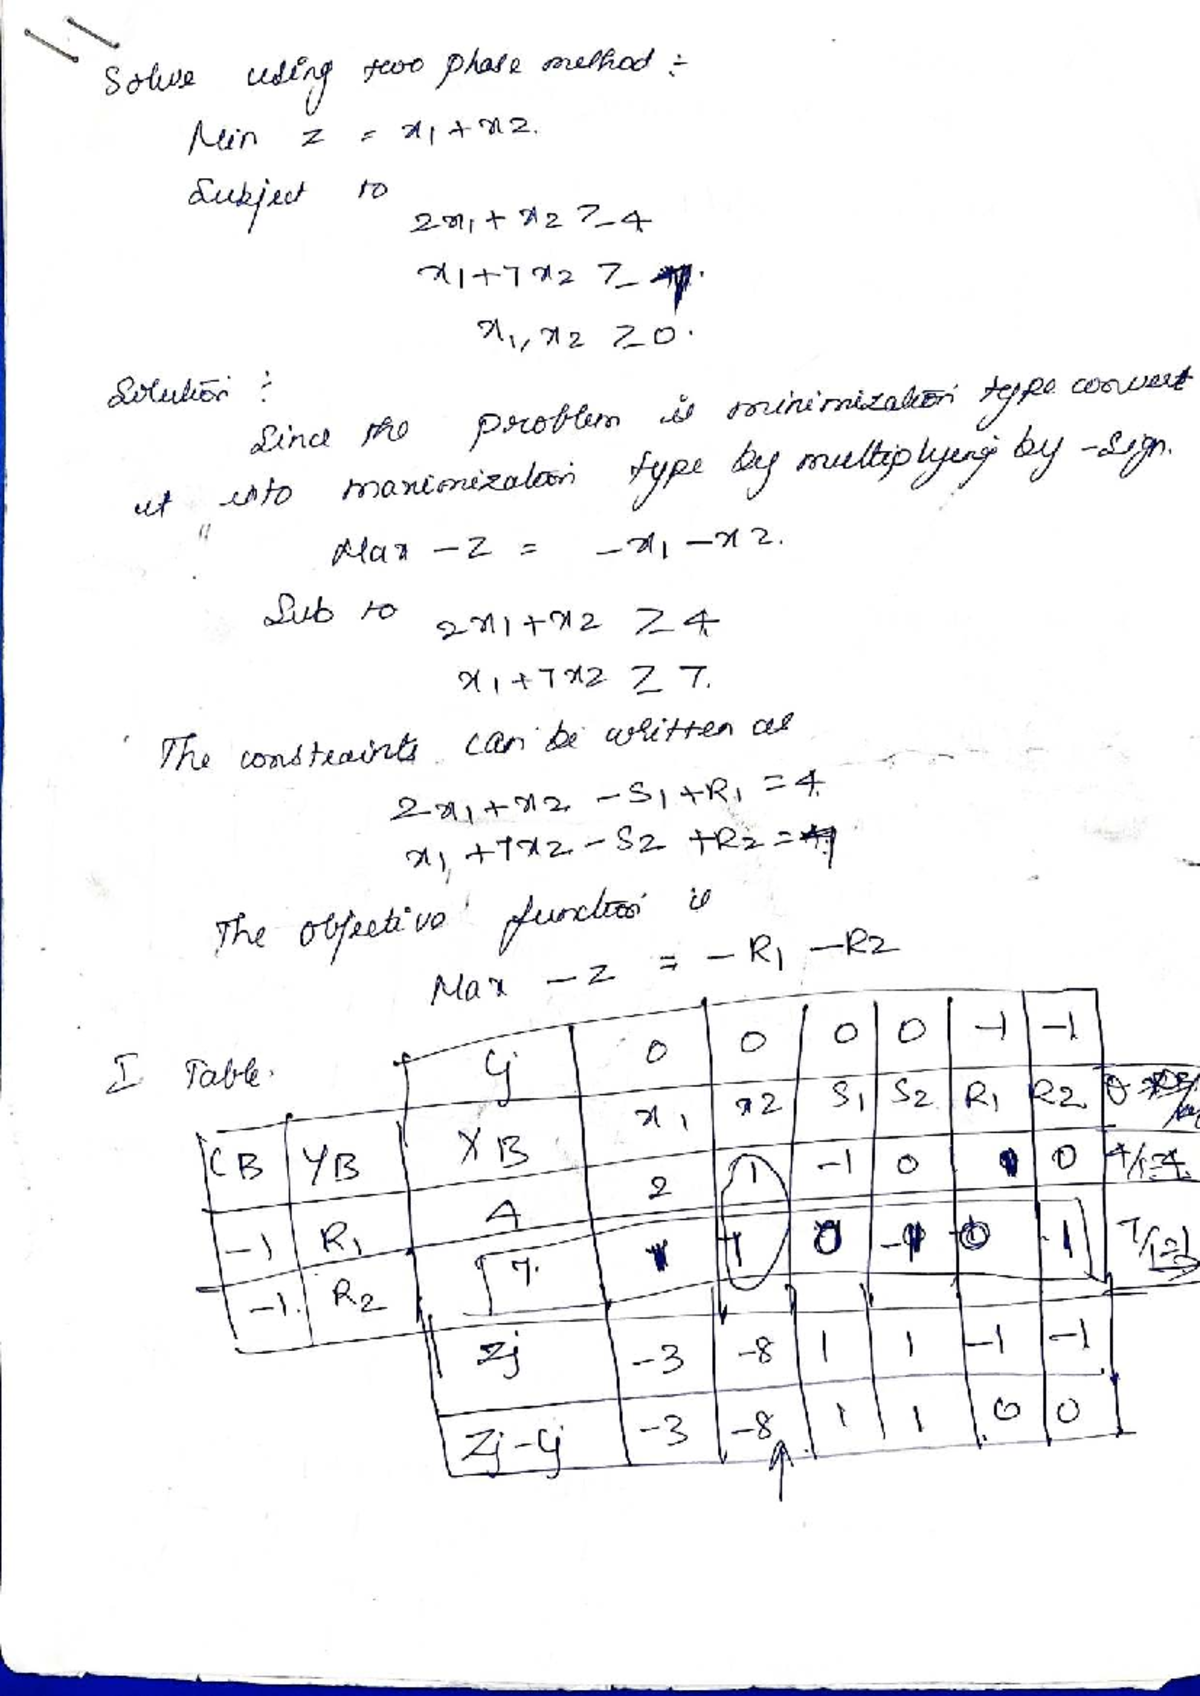 Solve using two phase method :-
Min Z = x1 + x2.
Subject to
2x1 + x2 ≥ 4
x1 + 7x2 ≥ 7.
x1, x2 ≥ 0.
Solution :-
Since the problem is minimization type convert
it into maximization type by multiplying by - sign.
Max - Z = - x1 - x2.
Sub to 2x1 + x2 ≥ 4
x1 + 7x2 ≥ 7.
The constraints can be written as
2x1 + x2 - S1 + R1 = 4
x1 + 7x2 - S2 + R2 = 7
The objective function is
Max - Z = - R1 - R2
I Table.
Cj 0 0 0 0 -1 -1
CB YB XB x1 x2 S1 S2 R1 R2 θ
-1 R1 4 2 1 -1 0 1 0 4/1=4
-1. R2 7. 1 7 0 -1 0 1
Zj -3 -8 1 1 -1 -1
Zj-Cj -3 -8 1 1 0 0